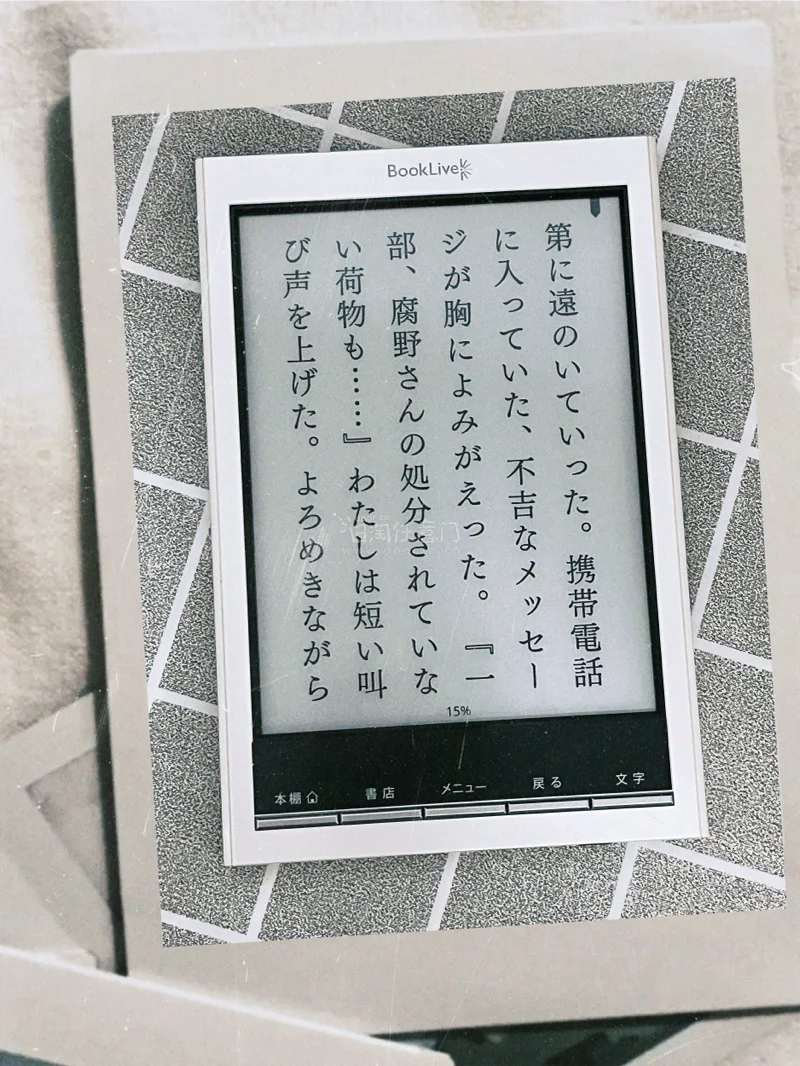 BookLive
第に遠のいていった。携帯電話
に入っていた、不吉なメッセー
ジが胸によみがえった。『一
部、腐野さんの処分されていな
い荷物も……』わたしは短い叫
び声を上げた。よろめきながら
15%
本棚
書店
メニュー
戻る
文字